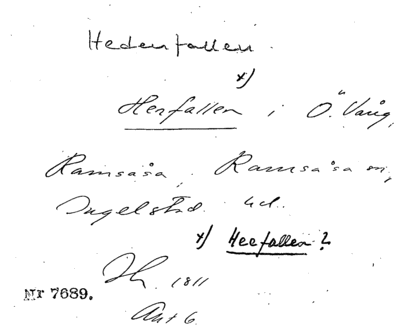 Hedenfallen.
x)
Herfallen i Ö. Vång,
Ramsåsa, Ramsåsa sn,
Ingelstad hd.
x) Heefallen?
1811
Nr 7689.
Akt 6.